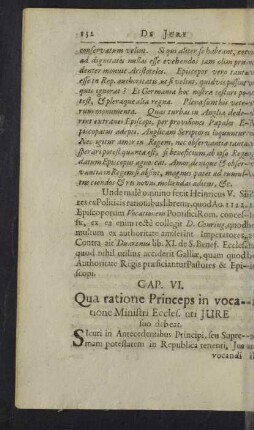 132 DE JURE
conservatum velint. Si qui aliter se habeant, eorum
ad dignitates nullos esse evehendos jam olim prudenter
monuit Aristoteles. Episcopos vero tantum
esse in Rep. authoritatis, ut si velint, quidvis possint
quis ignorat? Et Germania hoc nostra testari
potest, & pleraque alia regna.
rum monumenta. Quas turbas in Anglia
Episcopi, per providos Papales
piscopatus adepti, Anglicani Scriptores loquuntur
Nec igitur amor in Regem, nec observantia
sperari potest quanta est, si beneficium ab ipso Rege
datum Episcopus agnoscat. Amor denique & observantia
in Regem si absint, magnus patet ad tumultus
ciendos & res novas moliendas aditus, &c.
Unde male omnino fecit Heinricus V.
ex Politicis rationibus
Episcoporum Vocationem Pontifici Rom.
fit, ex ea enim recte collegit D. Conring, quod
multum ex authoritate amiserint Imperatores.
Contra ait Duarenus lib. XI. de S. Benef. Eccles.
quod nihil utilius acciderit Galliæ, quam quod
Authoritate Regis præficiantur Pastores & Episcopi.
CAP. VI.
Qua ratione Princeps in vocatione
Ministri Eccles. uti JURE
suo debeat.
SIcuti in Antecedentibus Principi, seu Supremam
potestatem in Republica tenenti, Jus
vocandi